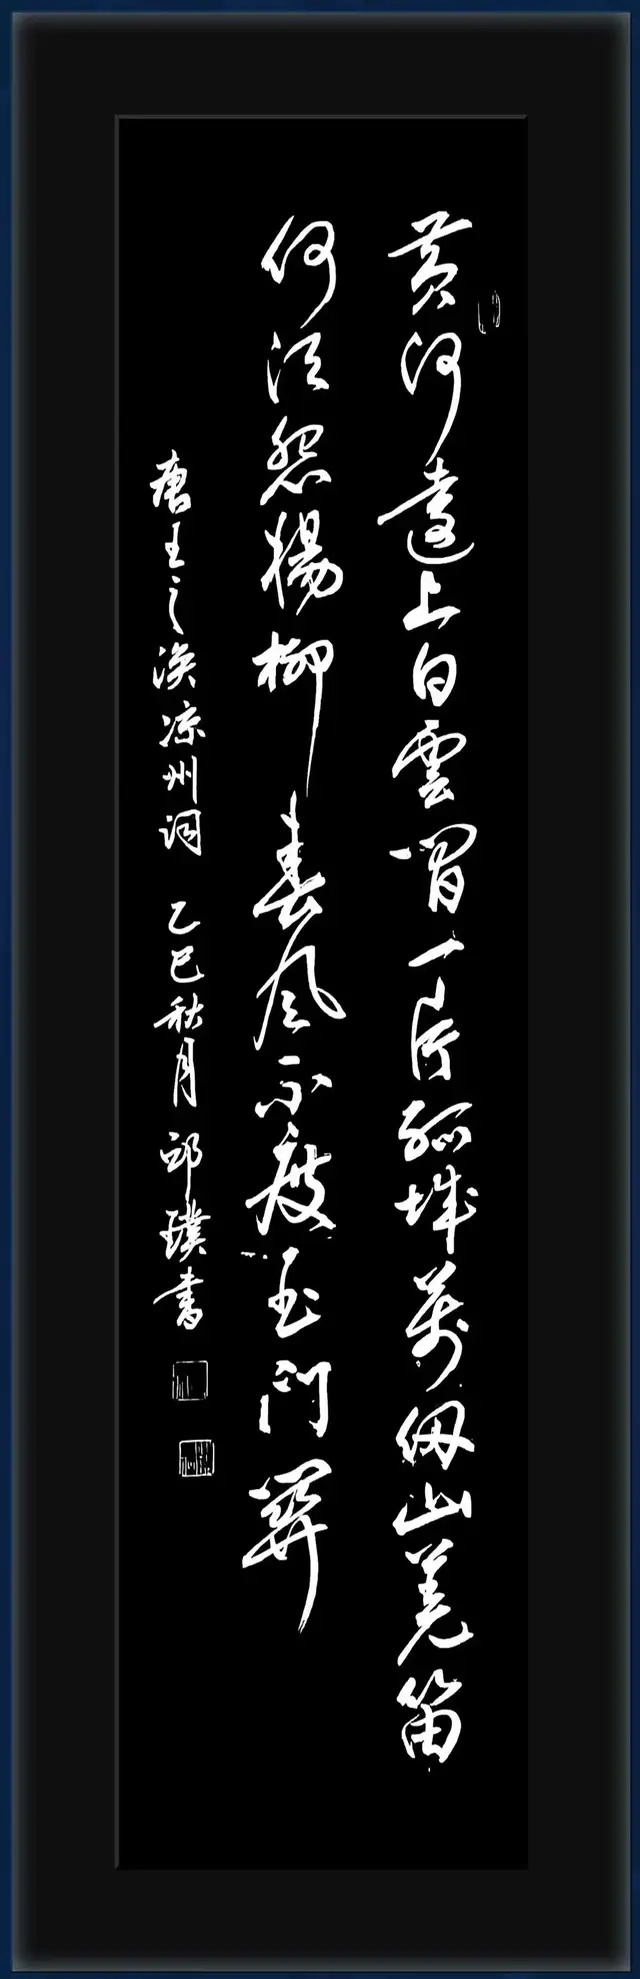 黄河遠上白雲間一片孤城萬仞山羌笛
何須怨楊柳春風不度玉門關
唐王之涣凉州词 乙巳秋月 邱璞書